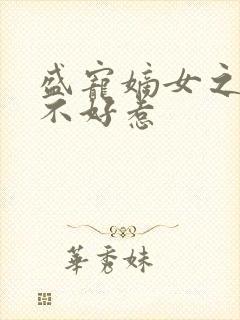 盛寵嫡女之
不好惹
華秀妹